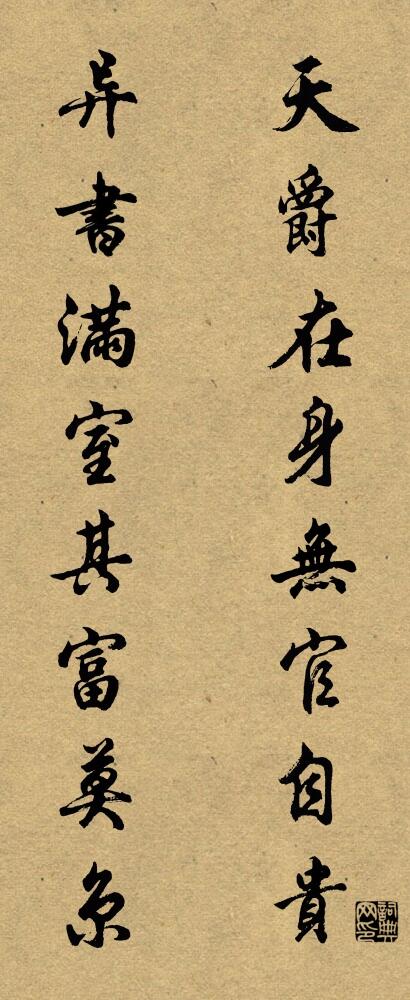 天爵在身無官自貴
异書滿室其富莫京
詞典网印